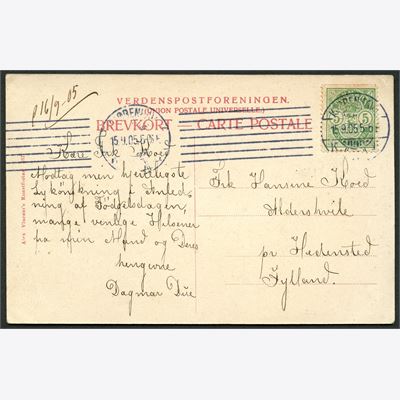 p 16/9-05
VERDENSPOSTFORENINGEN.
(UNION POSTALE UNIVERSELLE.)
BREVKORT CARTE POSTALE
15.9.05.5-6 E
15.9.05.5-6 E
5 5
Kære Frk Koed
Modtag min hjerteligste
Lykønskning i Anled-
ning af Fødselsdagen,
mange venlige Hilsener
fra min Mand og Deres
hengivne
Dagmar Due
Frk Hansine Koed
Aldershvile
pr Hedensted
Jylland.